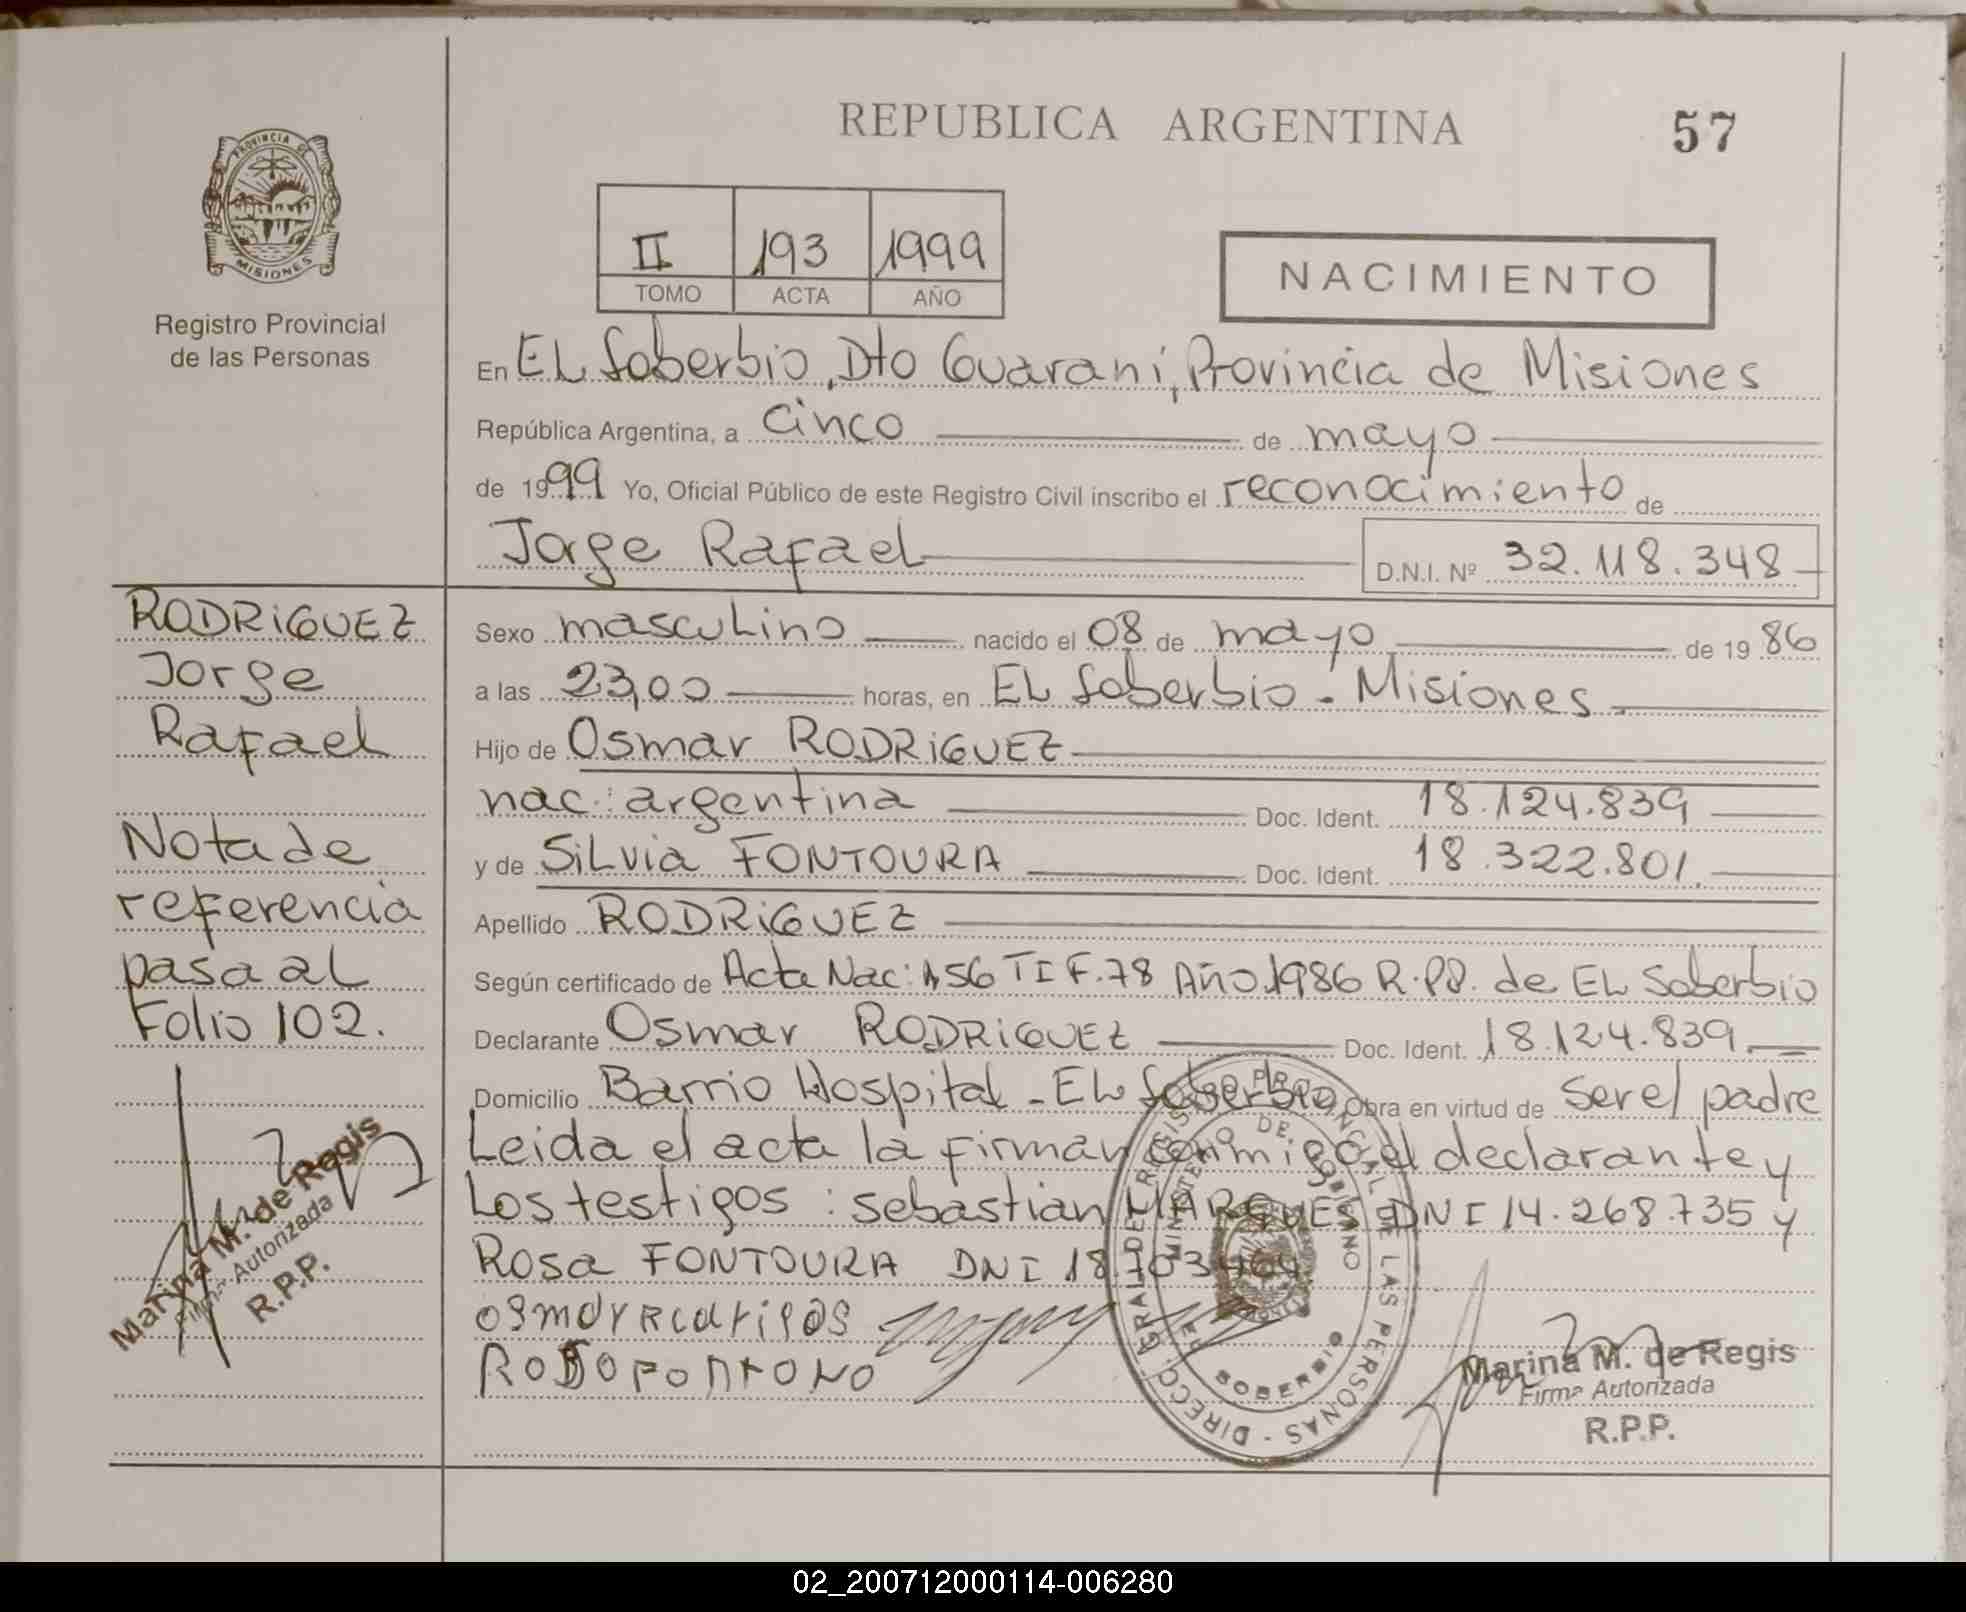 REPUBLICA ARGENTINA
57
PROVINCIA DE
MISIONES
Registro Provincial
de las Personas
II 193 1999
TOMO ACTA AÑO
NACIMIENTO
En EL Soberbio, Dto Guaraní, Provincia de Misiones
República Argentina, a cinco de mayo
de 1999 Yo, Oficial Público de este Registro Civil inscribo el reconocimiento de
Jorge Rafael D.N.I. Nº 32.118.348
RODRIGUEZ
Jorge
Rafael
Nota de
referencia
pasa al
Folio 102.
Marina M. de Regis
Firma Autorizada
R.P.P.
Sexo masculino nacido el 08 de mayo de 1986
a las 23,00 horas, en EL Soberbio - Misiones
Hijo de Osmar RODRIGUEZ
nac: argentina Doc. Ident. 18.124.839
y de Silvia FONTOURA Doc. Ident. 18.322.801
Apellido RODRIGUEZ
Según certificado de Acta Nac: 156 T I F. 78 Año 1986 R.PP. de EL Soberbio
Declarante Osmar RODRIGUEZ Doc. Ident. 18.124.839
Domicilio Barrio Hospital - EL Soberbio Obra en virtud de ser el padre
Leida el acta la firman conmigo, el declarante y
Los testigos: sebastian MARQUES DNI 14.268.735 y
Rosa FONTOURA DNI 18.703.464
DIRECC. GRAL DE REGISTRO PROVINCIAL DE LAS PERSONAS
MINISTERIO DE GOBIERNO
EL SOBERBIO
Marina M. de Regis
Firma Autorizada
R.P.P.
02_200712000114-006280